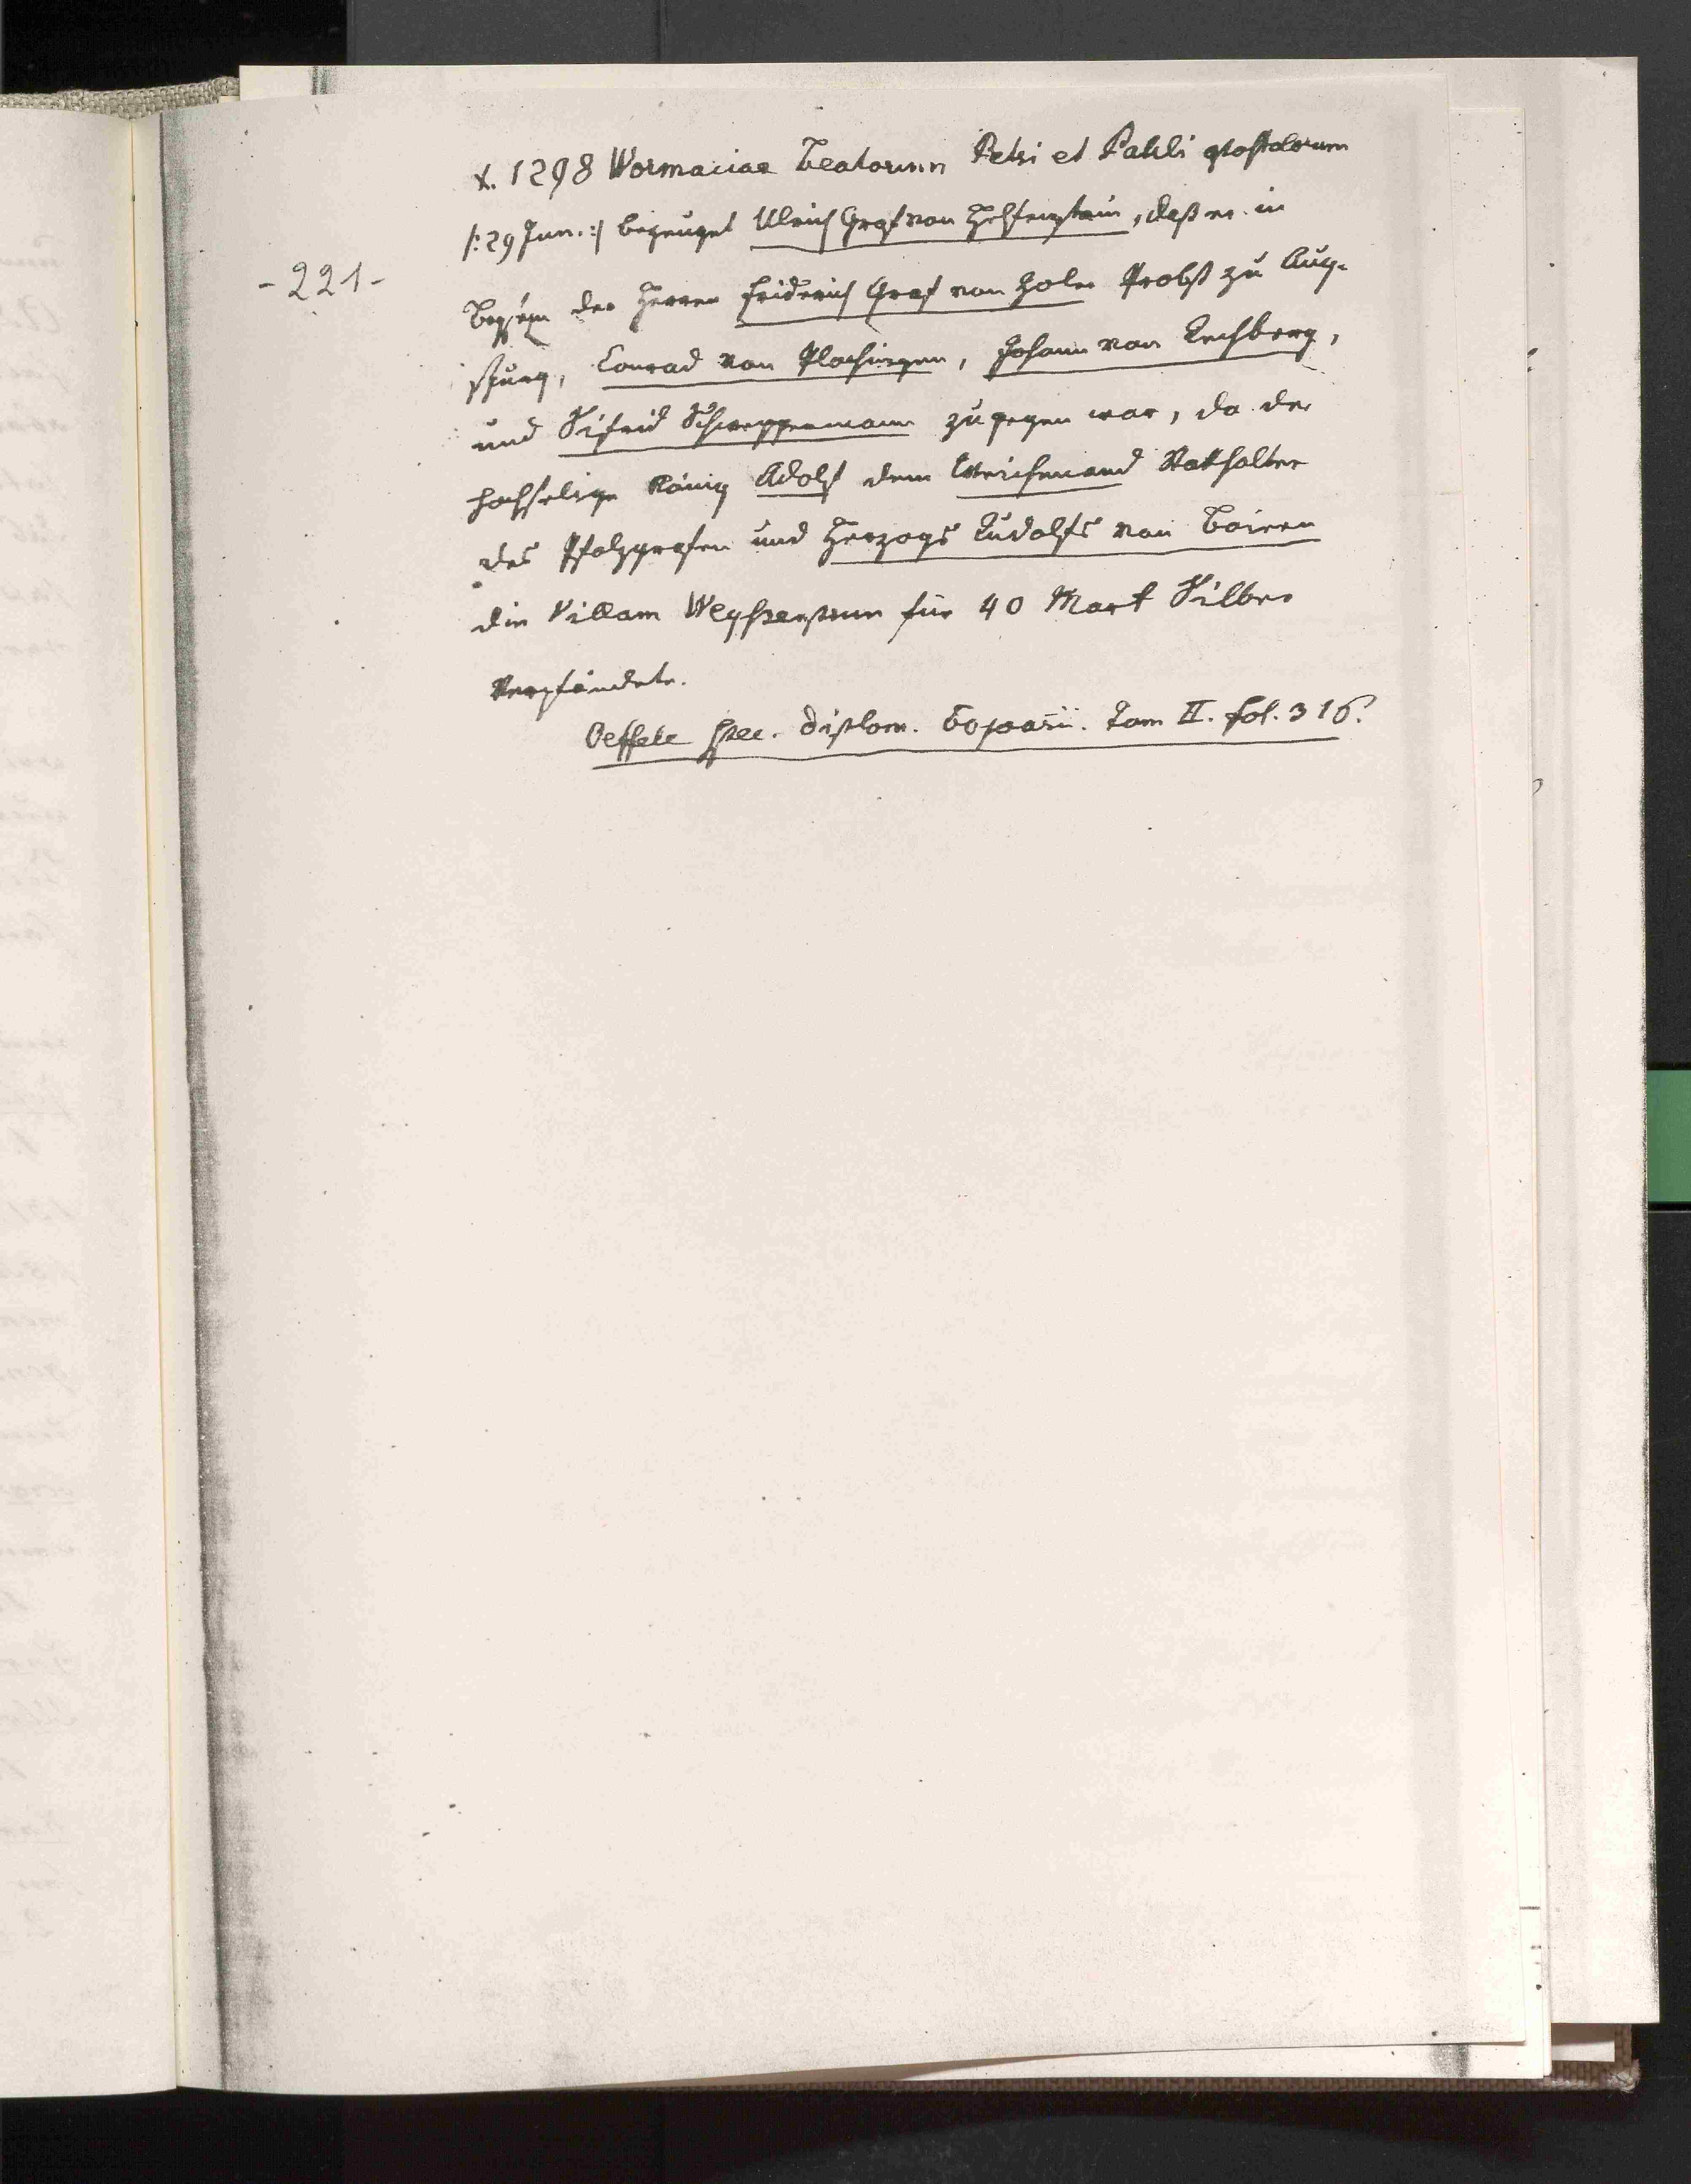 X. 1298 Wormaciae Beatorum Petri et Pauli apostolorum
/: 29 Jun. :/ bezeuget Ulrich Graf von Helfenstein, daß er in
-221-
Beyseyn der Herren Friderich Graf von Zoler Probst zu Aug-
spurg, Conrad von Plochingen, Johann von Rechberg,
und Sifrid Schweppermann zugegen war, da der
hochselige König Adolf dem Weichnand Statthalter
des Pfalzgrafen und Herzogs Rudolfs von Baiern
die Villam für 40 Mark Silber
verpfändete.
Oeffele diplom. Tom II. fol. 316.